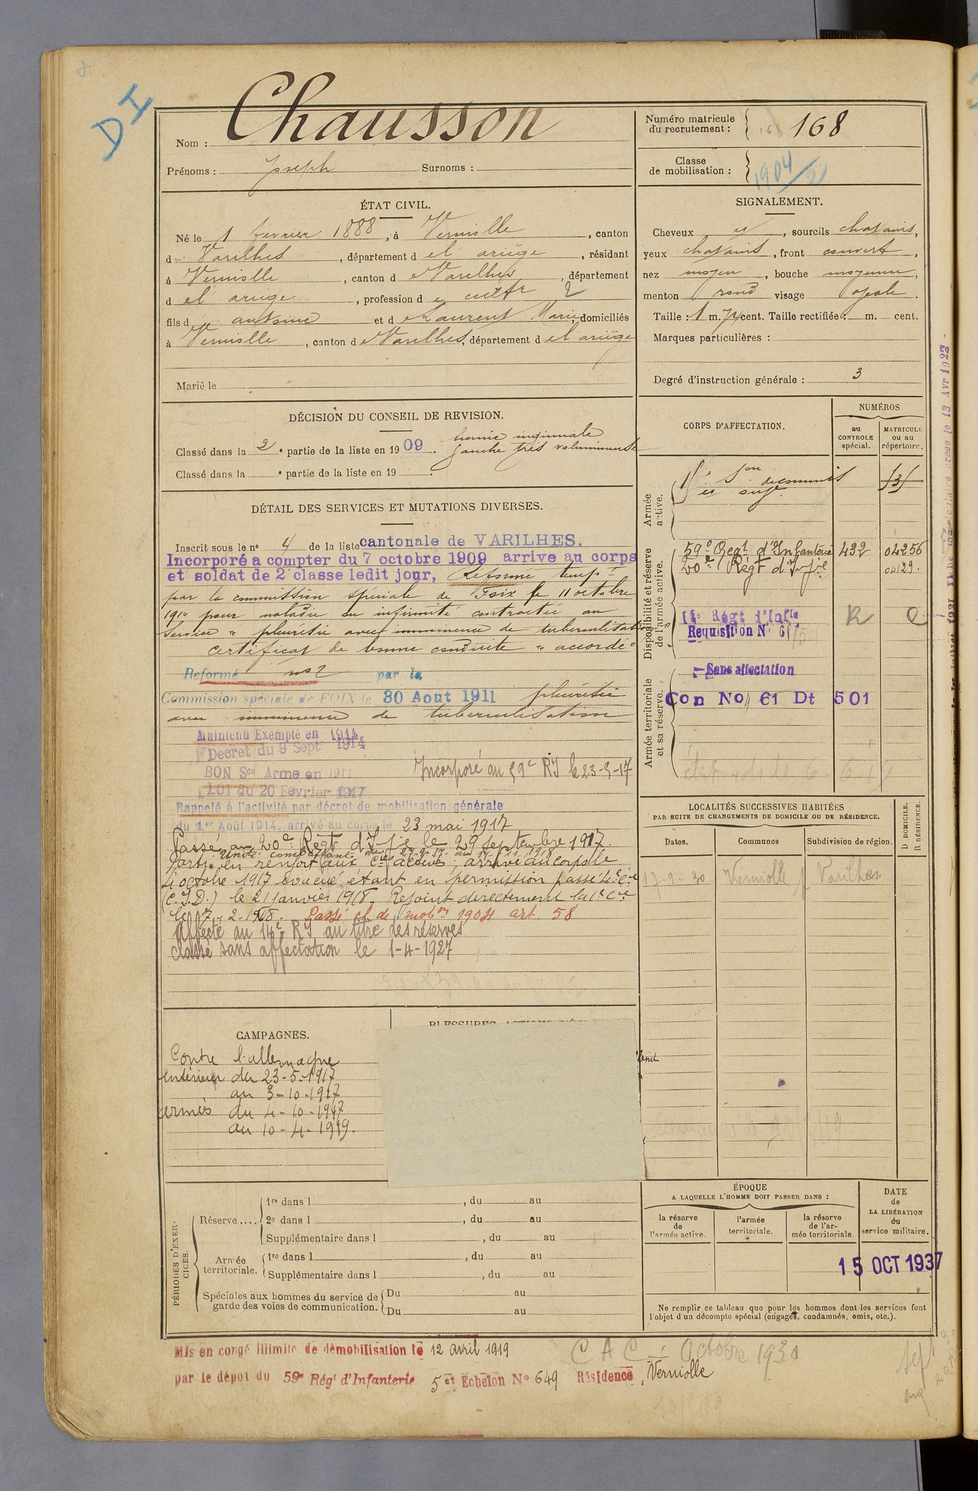 D I
Nom : Chausson
Prénoms : Joseph Surnoms :
Numéro matricule du recrutement : 168
Classe de mobilisation : 1904
ÉTAT CIVIL.
Né le 1 février 1888, à Verniolle, canton
d Varilhes, département d el ariège, résidant
à Verniolle, canton d Varilhes, département
d el ariège, profession d cultr 2
fils d antoine et d Laurent Marie domiciliés
à Verniolle, canton d Varilhes, département d el ariège
Marié le
SIGNALEMENT.
Cheveux , sourcils chatains,
yeux chatains, front couvert,
nez moyen, bouche moyenne,
menton rond visage ovale.
Taille : 1 m. cent. Taille rectifiée : m. cent.
Marques particulières :
Degré d'instruction générale : 3
DÉCISION DU CONSEIL DE REVISION.
hernie inguinale
Classé dans la 2e partie de la liste en 1909. gauche très volumineuse
Classé dans la e partie de la liste en 19 .
DÉTAIL DES SERVICES ET MUTATIONS DIVERSES.
Inscrit sous le n° 4 de la liste cantonale de VARILHES.
Incorporé a compter du 7 octobre 1909 arrive au corps
et soldat de 2e classe ledit jour, Réformé temp
par la commission spéciale de Foix le 11 octobre
1910 pour maladie ou infirmité contractée au
service "pleurésie avec imminence de tuberculisation
certificat de bonne conduite "accordé"
Réformé n° 2 par la
Commission spéciale de FOIX le 30 Aout 1911 pleurésie
avec imminence de tuberculisation
Maintenu Exempté en 1914
Décret du 9 Sept 1914
BON Sce Armé en 1917
LOI du 20 Fevrier 1917
Incorporé au 59e RI le 23-5-17
Rappelé à l'activité par décret de mobilisation générale
du 1er Août 1914, arrivé au corps le 23 mai 1917
Passé au 20e Régt d'Infie le 29 septembre 1917.
Parti en renfort aux armées, arrivé au corps le
4 octobre 1917 évacué étant en permission passé 4e Cie
(C.I.D.) le 21 janvier 1918. Rejoint directement la 1e Cie
le 7-2-1918. Passé cl de mobon 1904 art. 58
Affecté au 14e RI au titre des réserves
Classé sans affectation le 1-4-1927
CORPS D'AFFECTATION.
NUMÉROS
au CONTROLE spécial.
MATRICULE ou au répertoire.
Armée active.
Disponibilité et réserve de l'armée active.
59e Regt d'Infanterie 492 04256
20e Régt d'Infie 04129
14e Régt d'Infie
Requisition N° 6 R
Sans affectation
Armée territoriale et sa réserve.
Con No 61 Dt 501
LOCALITÉS SUCCESSIVES HABITÉES
PAR SUITE DE CHANGEMENTS DE DOMICILE OU DE RÉSIDENCE.
Dates. Communes Subdivision de région. D DOMICILE. R RÉSIDENCE.
17-9-30 Verniolle Varilhes
CAMPAGNES.
Contre l'allemagne
intérieur du 23-5-1917
au 3-10-1917
armées du 4-10-1917
au 10-4-1919.
PÉRIODES D'EXERCICES.
Réserve....
1re dans l , du au
2e dans l , du au
Supplémentaire dans l , du au
Armée territoriale.
1re dans l , du au
Supplémentaire dans l , du au
Spéciales aux hommes du service de garde des voies de communication.
Du au
Du au
ÉPOQUE
A LAQUELLE L'HOMME DOIT PASSER DANS :
la réserve de l'armée active.
l'armée territoriale.
la réserve de l'armée territoriale.
DATE de LA LIBÉRATION du service militaire.
15 OCT 1937
Ne remplir ce tableau que pour les hommes dont les services font
l'objet d'un décompte spécial (engagés, condamnés, omis, etc.).
Mis en congé illimité de démobilisation le 12 avril 1919
par le dépôt du 59e Régt d'Infanterie 5e Échelon N° 649 Résidence, Verniolle
C A C : Octobre 1930